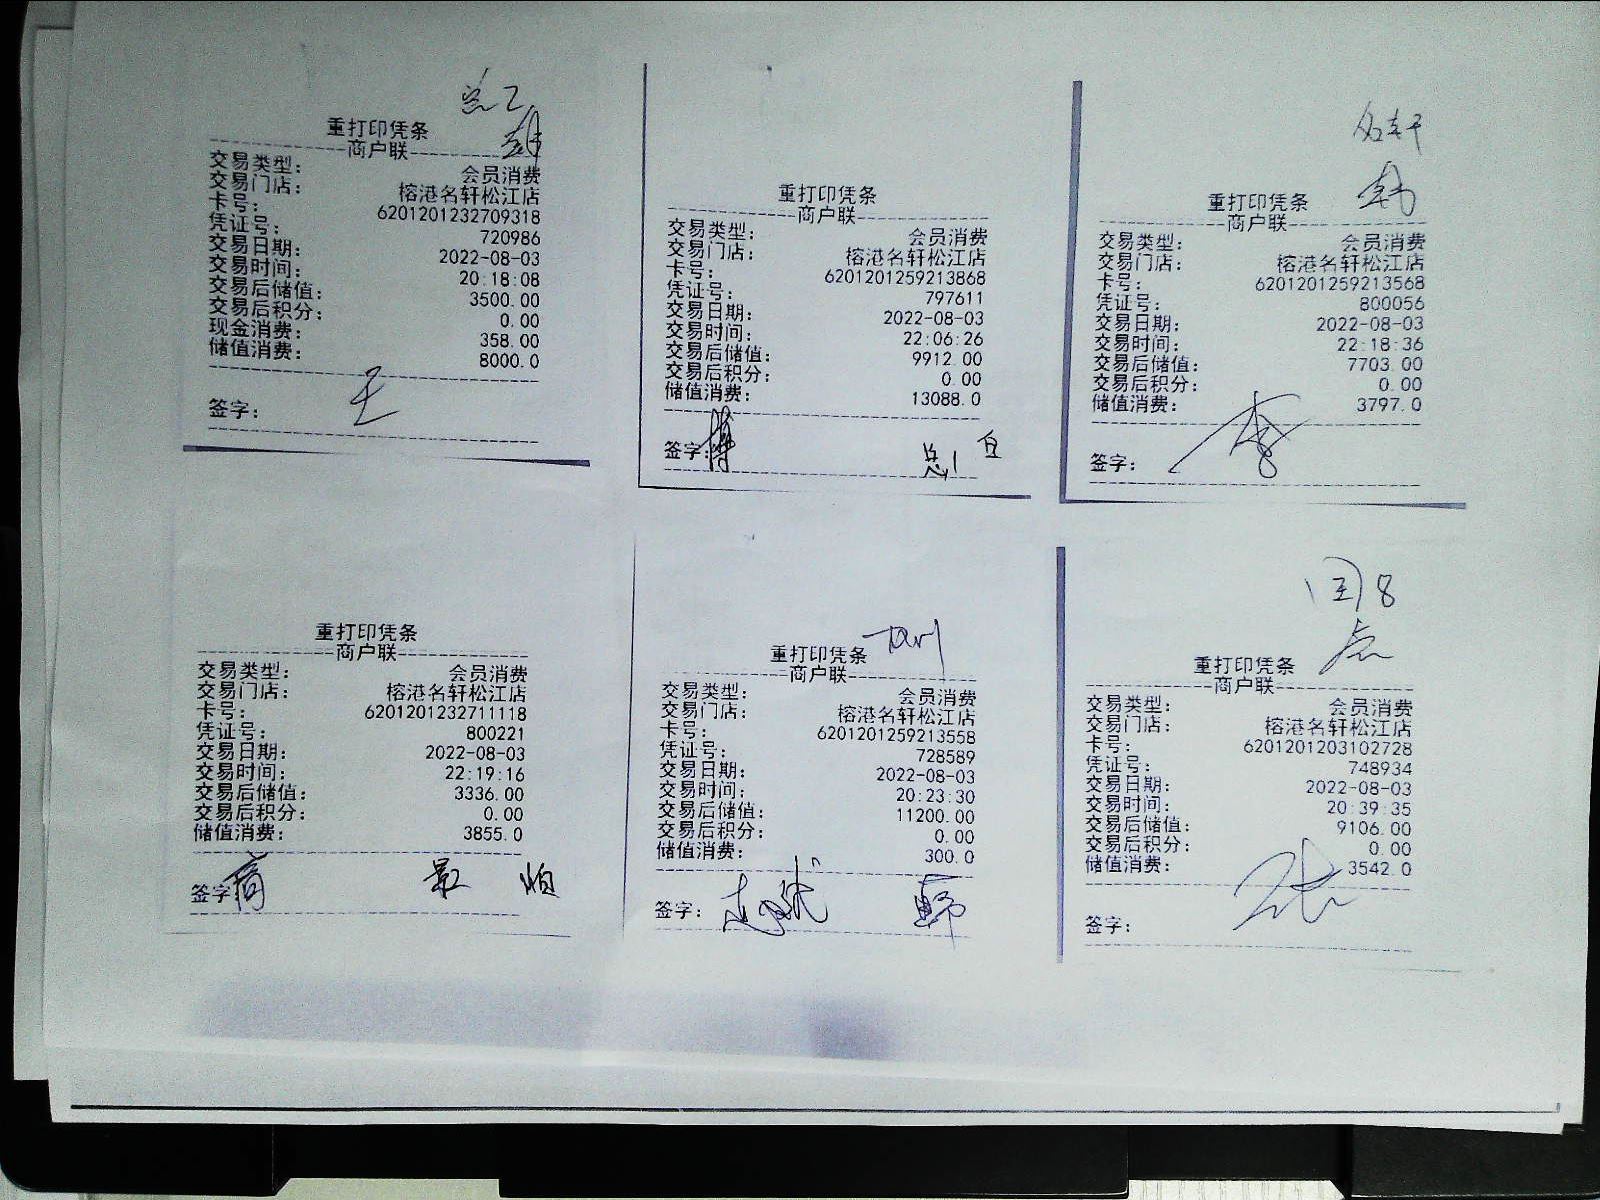 重打印凭条
商户联
交易类型： 会员消费
交易门店： 榕港名轩松江店
卡号： 6201201232709318
凭证号： 720986
交易日期： 2022-08-03
交易时间： 20:18:08
交易后储值： 3500.00
交易后积分： 0.00
现金消费： 358.00
储值消费： 8000.0
签字： 王
重打印凭条
商户联
交易类型： 会员消费
交易门店： 榕港名轩松江店
卡号： 6201201259213868
凭证号： 797611
交易日期： 2022-08-03
交易时间： 22:06:26
交易后储值： 9912.00
交易后积分： 0.00
储值消费： 13088.0
签字：
名轩
重打印凭条
商户联
交易类型： 会员消费
交易门店： 榕港名轩松江店
卡号： 6201201259213568
凭证号： 800056
交易日期： 2022-08-03
交易时间： 22:18:36
交易后储值： 7703.00
交易后积分： 0.00
储值消费： 3797.0
签字： 李
重打印凭条
商户联
交易类型： 会员消费
交易门店： 榕港名轩松江店
卡号： 6201201232711118
凭证号： 800221
交易日期： 2022-08-03
交易时间： 22:19:16
交易后储值： 3336.00
交易后积分： 0.00
储值消费： 3855.0
签字
重打印凭条
商户联
交易类型： 会员消费
交易门店： 榕港名轩松江店
卡号： 6201201259213558
凭证号： 728589
交易日期： 2022-08-03
交易时间： 20:23:30
交易后储值： 11200.00
交易后积分： 0.00
储值消费： 300.0
签字：
重打印凭条
商户联
交易类型： 会员消费
交易门店： 榕港名轩松江店
卡号： 6201201203102728
凭证号： 748934
交易日期： 2022-08-03
交易时间： 20:39:35
交易后储值： 9106.00
交易后积分： 0.00
储值消费： 3542.0
签字： 张